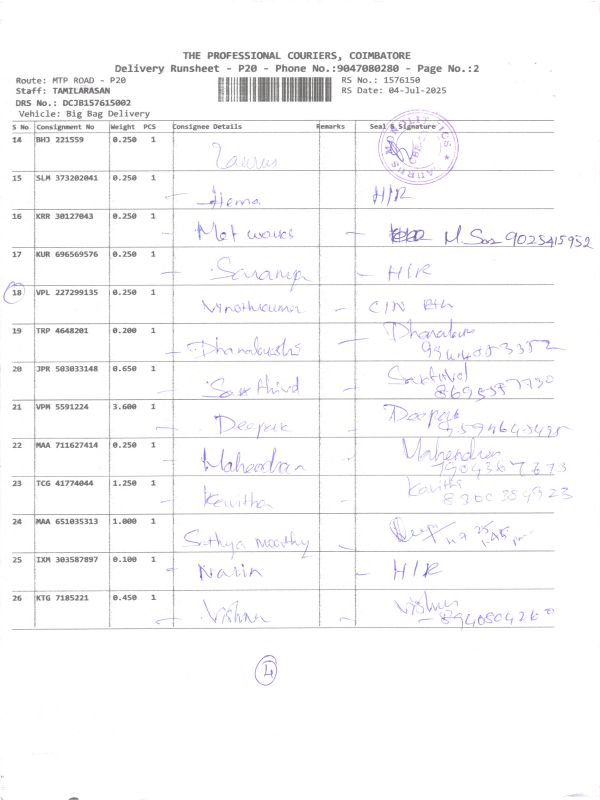 THE PROFESSIONAL COURIERS, COIMBATORE
Delivery Runsheet - P20 - Phone No.:9047080280 - Page No.:2
Route: MTP ROAD - P20 RS No.: 1576150
Staff: TAMILARASAN RS Date: 04-Jul-2025
DRS No.: DCJB157615002
Vehicle: Big Bag Delivery
S No Consignment No Weight PCS Consignee Details Remarks Seal & Signature
14 BHJ 221559 0.250 1 Taurus
15 SLM 373202041 0.250 1 Hema H/R
16 KRR 30127043 0.250 1 Met waves 9025415952
17 KUR 696569576 0.250 1 Saranya H/R
18 VPL 227299135 0.250 1 Vinothkumar
19 TRP 4648201 0.200 1
20 JPR 503033148 0.650 1
21 VPM 5591224 3.600 1 Deepak Deepak
22 MAA 711627414 0.250 1 Mahendran Mahendran
23 TCG 41774044 1.250 1 Kavitha Kavitha
24 MAA 651035313 1.000 1 Sathya moorthy
25 IXM 303587897 0.100 1 Nalin H/R
26 KTG 7185221 0.450 1 Vishnu Vishnu
4